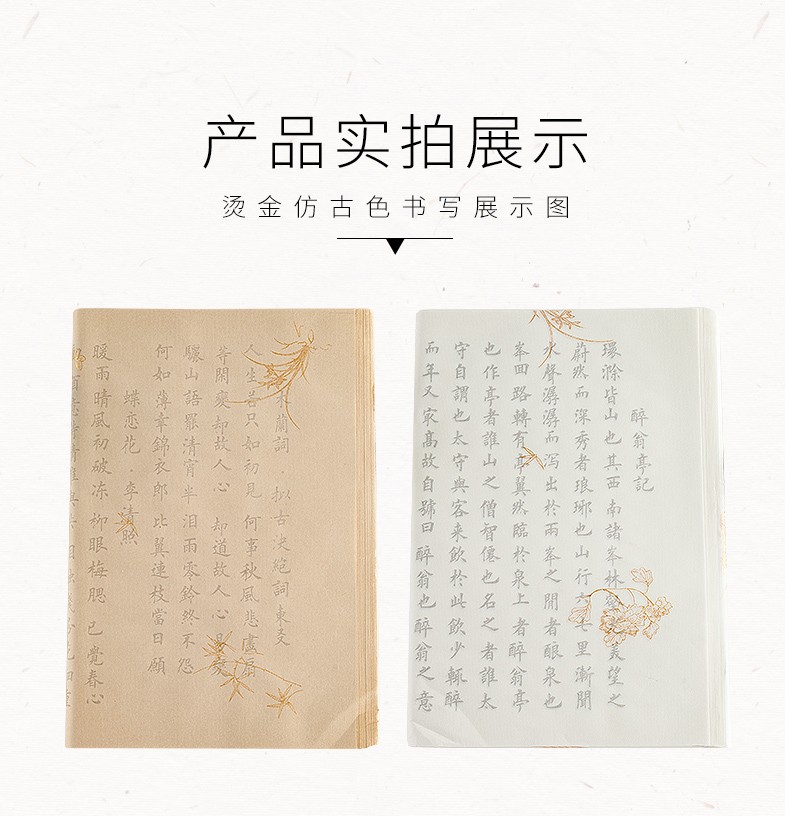 产品实拍展示
烫金仿古色书写展示图
木蘭詞 拟古決絕詞柬友
人生若只如初見 何事秋風悲畫扇
等閑變却故人心 却道故人心易變
驪山語罷清宵半 泪雨零鈴終不怨
何如薄幸錦衣郎 比翼連枝當日願
蝶恋花·李清照
暖雨晴風初破凍 柳眼梅腮 已覺春心
醉翁亭記
環滁皆山也其西南諸峯林美望之
蔚然而深秀者琅琊也山行六七里漸聞
水聲潺潺而泻出於兩峯之間者釀泉也
峯回路轉有亭翼然臨於泉上者醉翁亭
也作亭者誰山之僧智僊也名之者誰太
守自謂也太守與客来飲於此飲少輒醉
而年又冣高故自號曰醉翁也醉翁之意